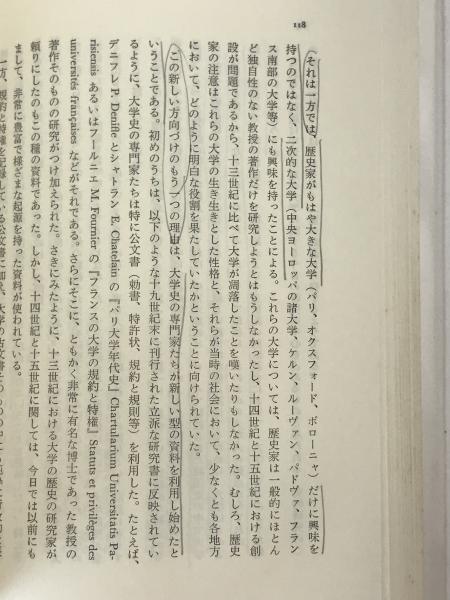 118
それは一方では、歴史家がもはや大きな大学（パリ、オクスフォード、ボローニャ）だけに興味を
持つのではなく、二次的な大学（中央ヨーロッパの諸大学、ケルン、ルーヴァン、パドヴァ、フラン
ス南部の大学等）にも興味を持ったことによる。これらの大学については、歴史家は一般的にほとん
ど独自性のない教授の著作だけを研究しようとはもうしなかったし、十四世紀と十五世紀における創
設が問題であるから、十三世紀に比べて大学が凋落したことを嘆いたりもしなかった。むしろ、歴史
家の注意はこれらの大学の生き生きとした性格と、それらが当時の社会において、少なくとも各地方
において、どのように明白な役割を果たしていたかということに向けられていた。
この新しい方向づけのもう一つの理由は、大学史の専門家たちが新しい型の資料を利用し始めたと
いうことである。初めのうちは、以下のような十九世紀末に刊行された立派な研究書に反映されてい
るように、大学史の専門家たちは特に公文書（勅書、特許状、規約と規則等）を利用した。たとえば、
デニフレ P. Denifle とシャトラン E. Chatelain の『パリ大学年代史』Chartularium Universitatis Pa-
risiensis あるいはフールニエ M. Fournier の『フランスの大学の規約と特権』Statuts et privilèges des
universités françaises などがそれである。さらにそこに、ともかく非常に有名な博士であった教授の
著作そのものの研究がつけ加えられた。さきにみたように、十三世紀における大学の歴史の研究家が
頼りにしたのもこの種の資料であった。しかし、十四世紀と十五世紀に関しては、今日では以前にも
まして、非常に豊富で様ざまな起源を持った資料が使われている。
一方、規約と特権を記録している公文書に加え、大学の古文書